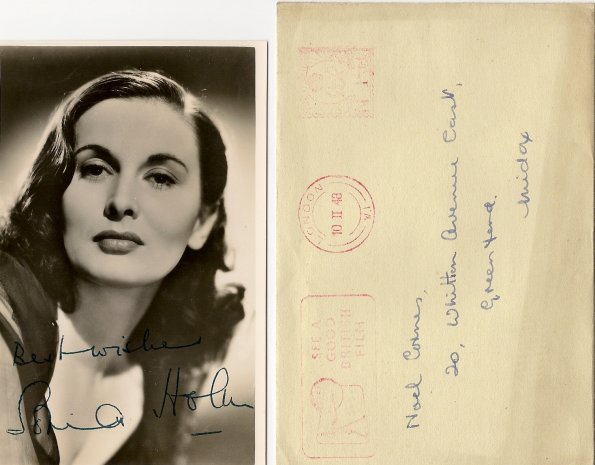 Best wishes
Sonia Holm
LONDON
10 II 48
V.I
SEE A
GOOD
BRITISH
FILM
Noel Cornes,
20, Whitton Avenue East,
Greenford.
Middx